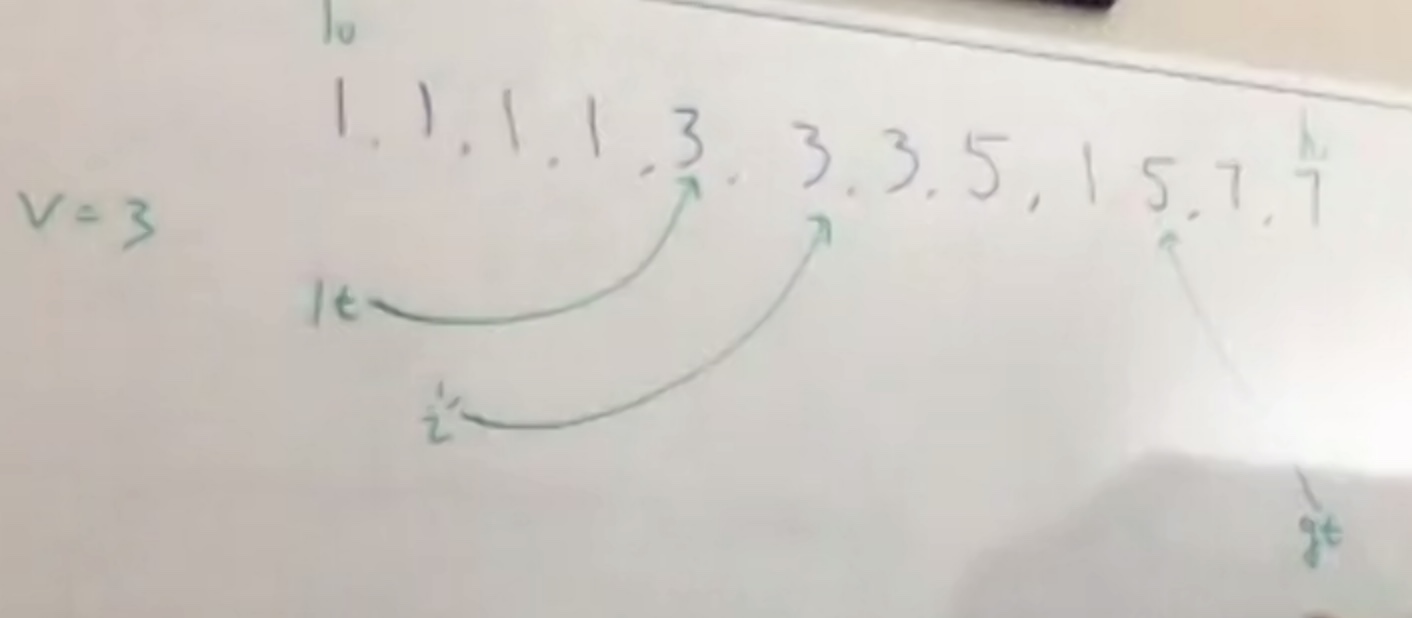 lo
1, 1, 1, 1, 3, 3, 3, 5, 1 5, 7, 7
V = 3
lt
i
gt